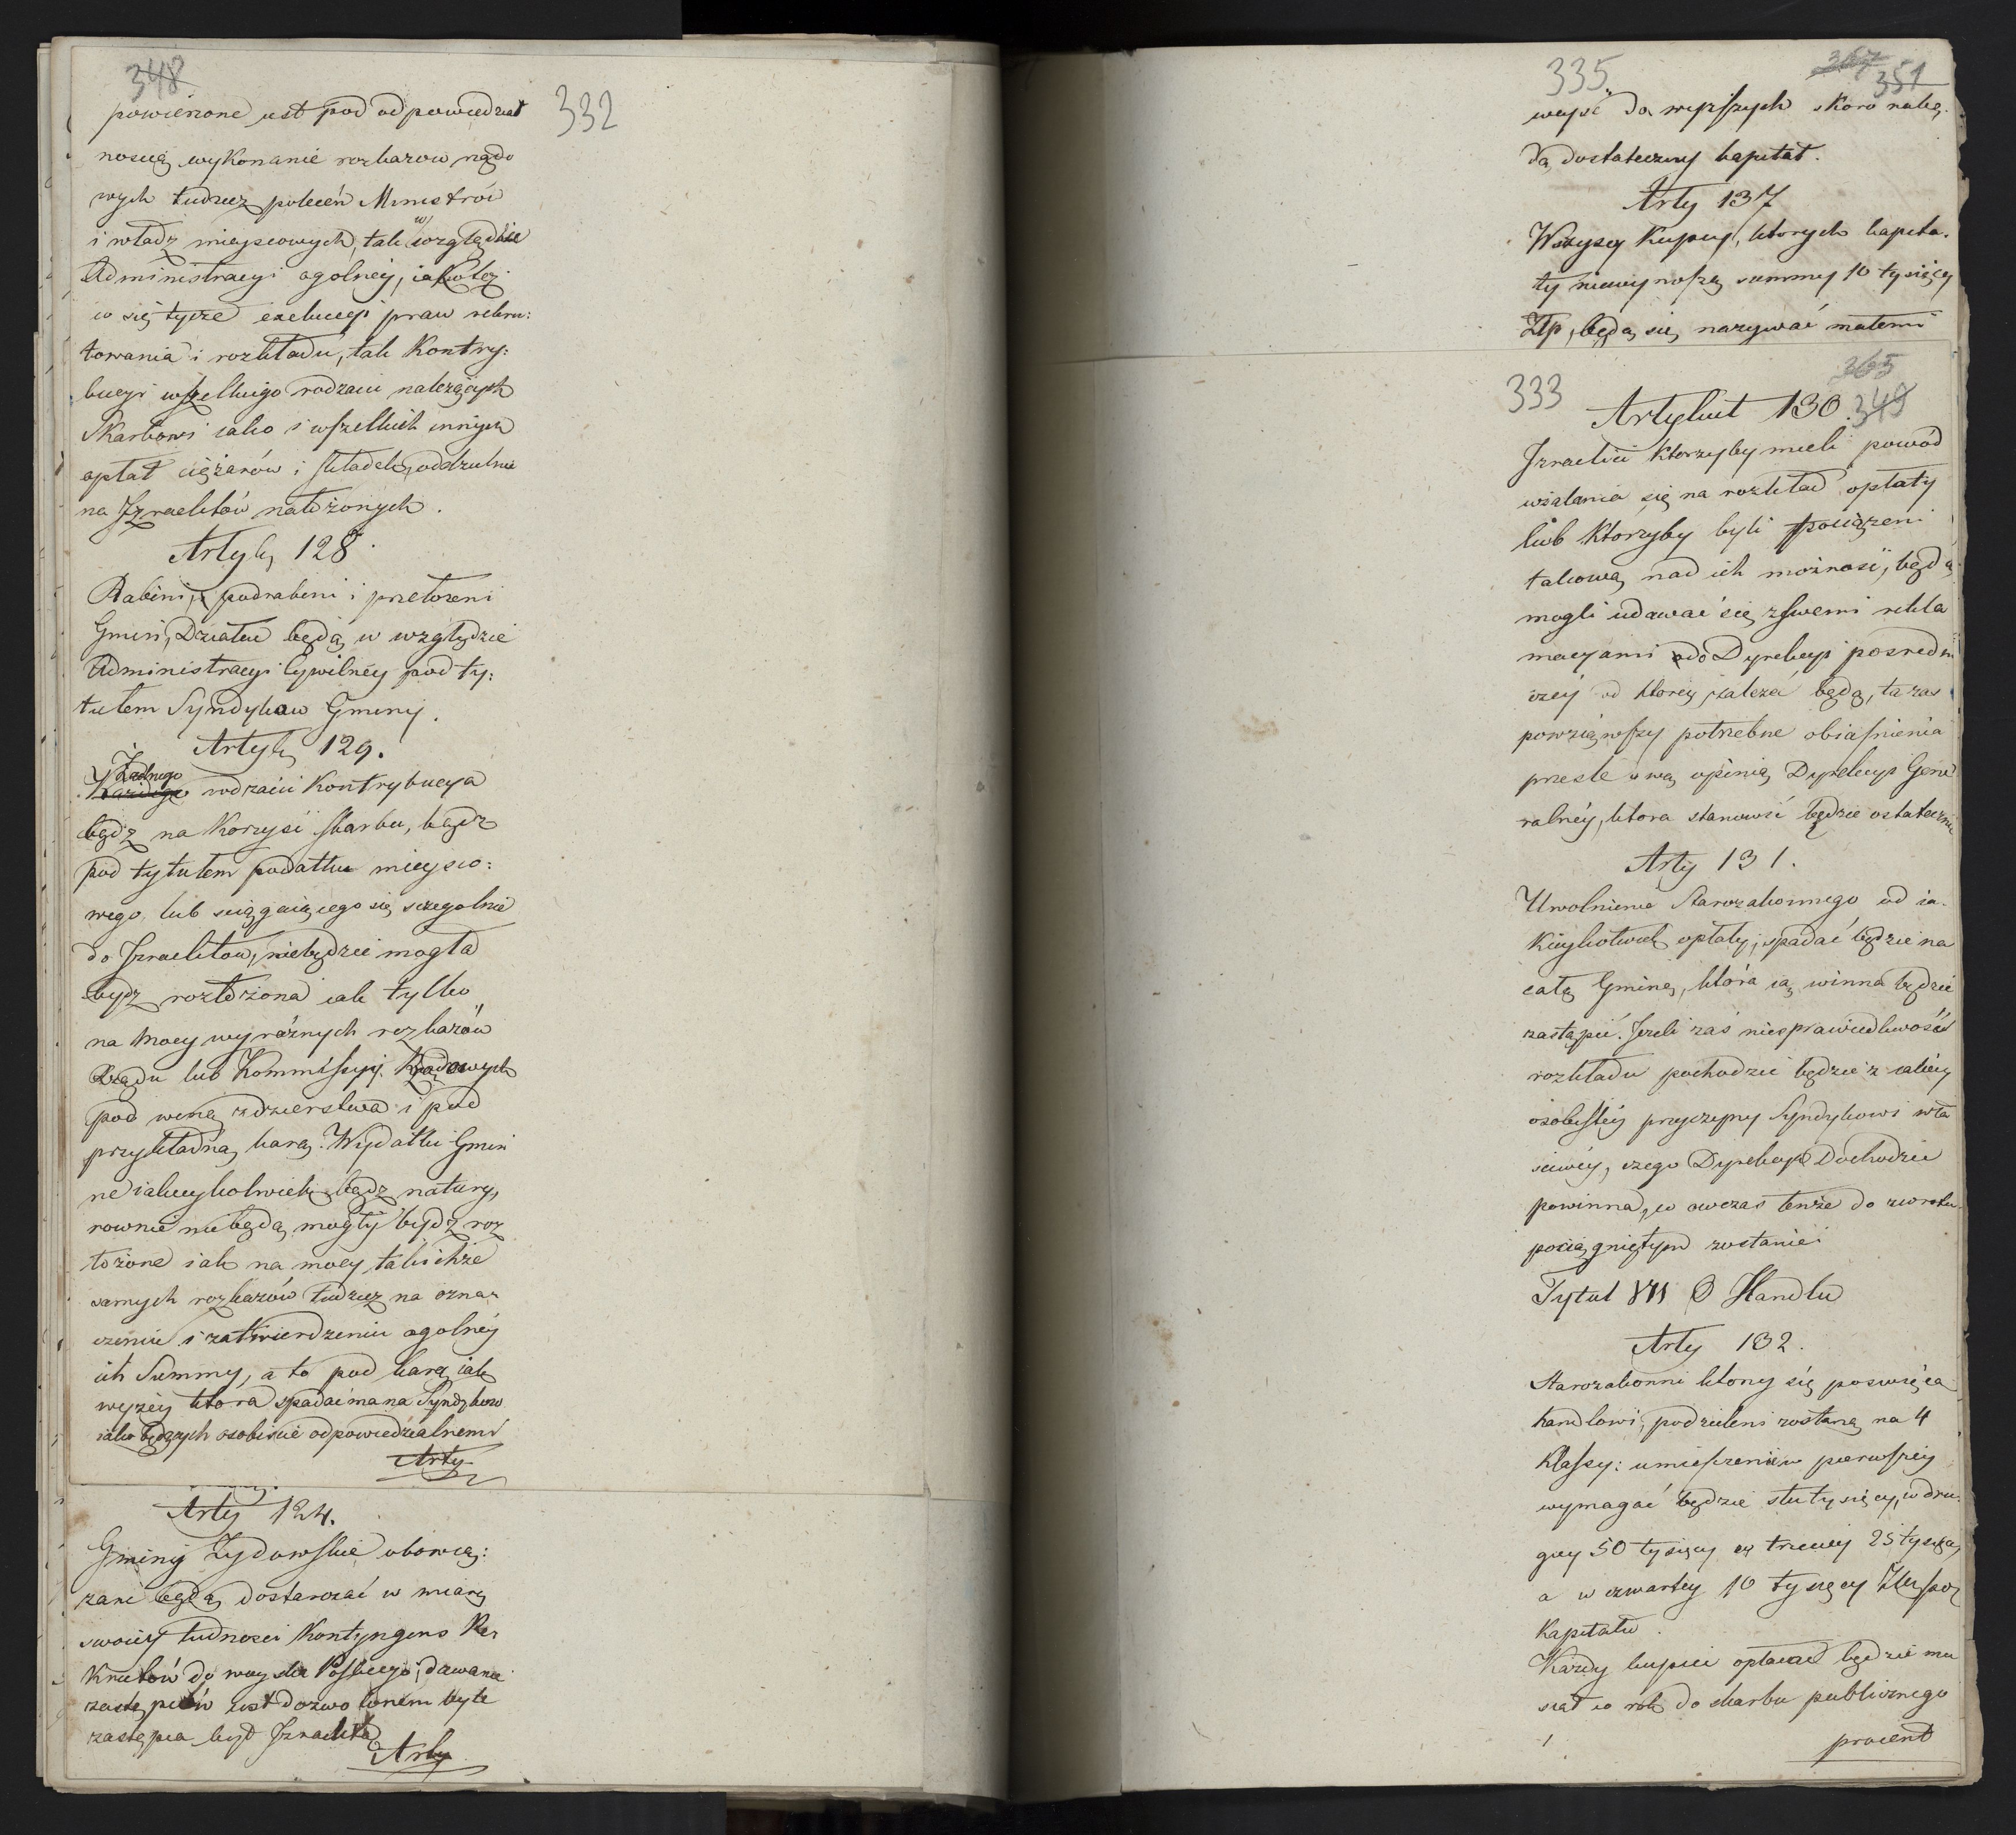 348
332
powierzone jest pod odpowiedzial
nością wykonanie rozkazow rządo
wych tudzież poleceń Ministrów
i władz mieyscowych, tak w względzie
Administracyi ogolney, iako też
co się tycze exekucyi praw rekru:
towania i rozkładu, tak Kontry:
bucyi wszelkiego rodzaiu należących
Skarbowi iako i wszelkich innych
opłat ciężarów i składek oddzielnie
na Izraelitów nałożonych.
Artyk 128.
Rabini, podrabini i przełożeni
Gmin, Działać będą w względzie
Administracyi Cywilney pod ty:
tułem Syndykow Gminy.
Artyk 129.
Żadnego
Każdego rodzaiu Kontrybucya
bądz na Korzyść skarbu, bądz
pod tytułem podatku mieysco:
wego lub sciągaiącego się szczegolnie
do Izraelitow, niebędzie mogła
bydz rozłożona iak tylko
na mocy wyraźnych rozkazów
Rządu lub Kommissyi Rządowych
pod winą zdzierstwa i pod
przykładną karą. Wydatki Gmin
ne iakieykolwiek bądz natury,
rownie niebędą mogły bydz roz
łożone iak na mocy takichże
samych rozkazów tudzież na ozna-
czeniu i zatwierdzeniu ogolney
ich Summy, a to pod karą iak
wyżey ktora spadać ma na Syndykow
iako będących osobiście odpowiedzialnemi
Arty
Arty 124.
Gminy Żydowskie obowią:
zane będą dostarczać w miarę
swoiey ludności Kontyngens Re
krutów do woyska Polskiego; dawanie
zastępców jest dozwolonem byle
zastępca był Izraelitą
Arty
335
367
351
weyść do wyższych skoro nabę-
dą dostateczny kapitał.
Arty 137
Wszyscy Kupcy, ktorych kapita-
ły niewynoszą summy 10 tysięcy
Złp, będą się nazywać małemi
333
365
349
Artykuł 130.
Izraelici ktorzyby mieli powód
użalania się na rozkład opłaty
lub ktorzyby byli pociążeni
takową nad ich możność, będą
mogli udawać się z swemi rekla
macyami do Dyrekcyi posredni
czey od ktorey zależeć będą, ta zas
powziąwszy potrzebne obiaśnienia
prześle swą opinią Dyrekcyi Gene
ralney, ktora stanowić będzie ostatecznie
Arty 131.
Uwolnienie Starozakonnego od ia-
kieykolwiek opłaty, spadać będzie na
całą Gminę, która ią winna będzie
zastąpić. Jeżeli zaś niesprawiedliwość
rozkładu pochodzić będzie z iakiey
osobistey przyczyny Syndykowi wła
sciwey, czego Dyrekcya Dochodzić
powinna, w owczas tenże do zwrotu
pociągniętym zostanie.
Tytuł VII O Handlu
Arty 132.
Starozakonni ktorzy się poswięcą
handlowi, podzieleni zostaną na 4
Klassy: umieszczenie w pierwszey
wymagać będzie stu tysięcy, w dru-
giey 50 tysięcy w trzeciey 25 tysięcy
a w czwartey 10 tysięcy Złt pol
Kapitału.
Każdy kupiec opłacać będzie mu
siał co rok do skarbu publicznego
procent